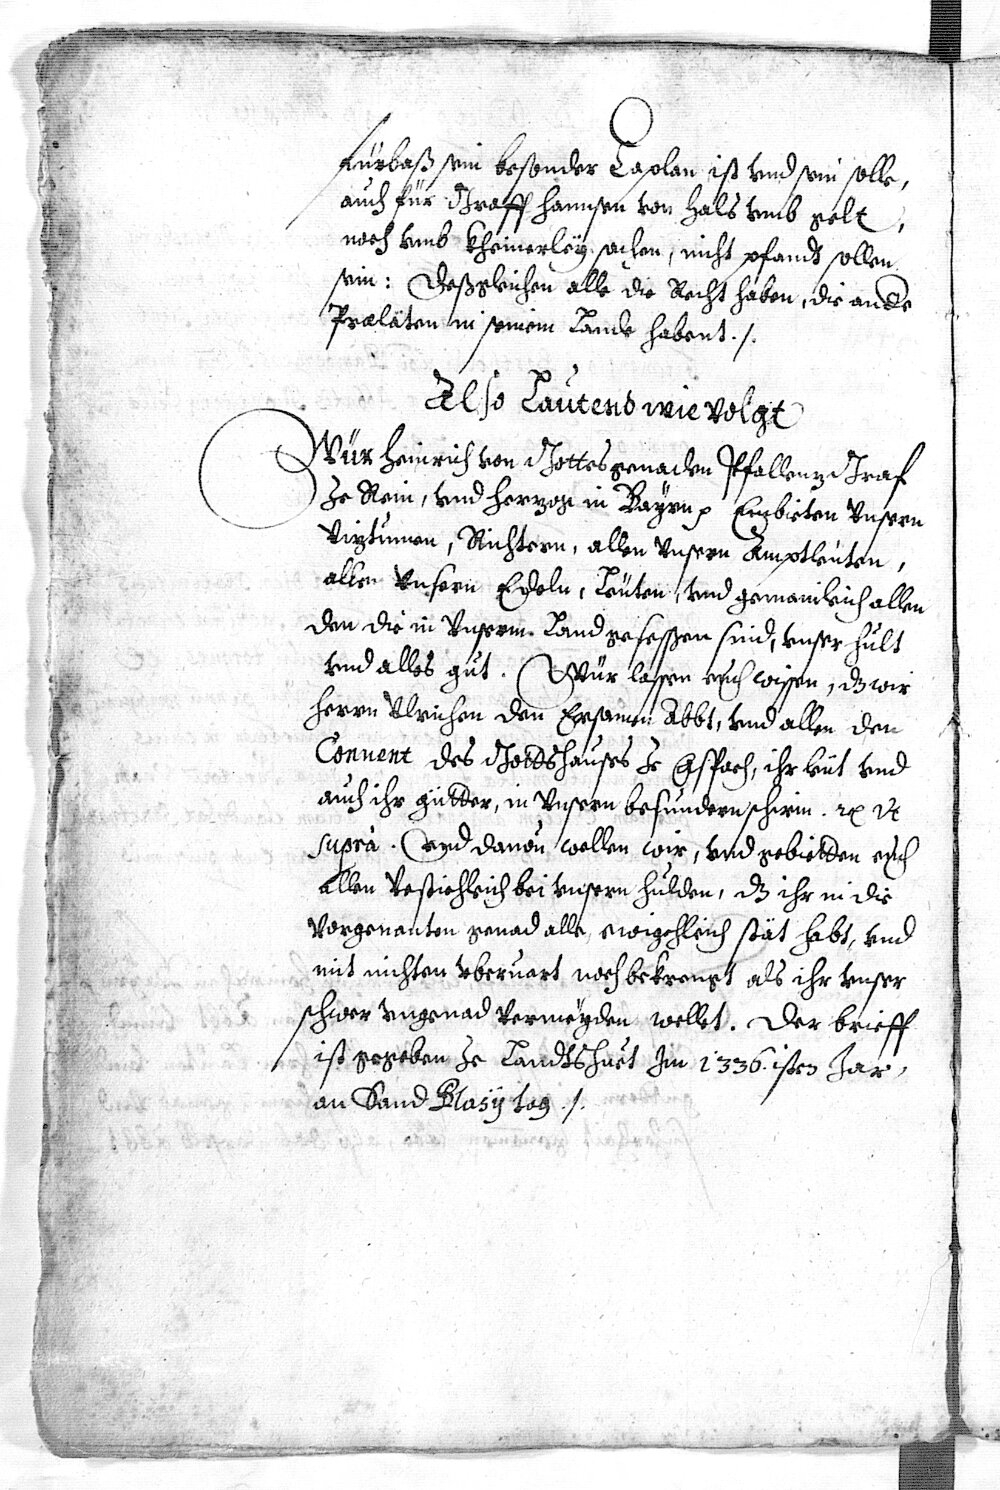 fürbaß sein besonder Caplan ist vnd sein solle,
auch für Graff Hannsen von Hals vmb gelt,
noch vmb kheinerleÿ sachen, nicht pfandt sollen
sein: Deßgleichen alle die Recht haben, die andere
Prælaten in seinem Lande habent ./.
Also Lautend wie volgt
Wür Heinrich von Gottes genaden Pfallenz Graf
Ze Rein, vnd Herzog in Baÿrn Embieten Vnsern
Viztumen, Richtern, allen Vnsern Amptleuten,
allen Vnsern Edeln, Leüten, vnd gemainleich allen
den die in Vnserm Land gesessen sind, vnser hult
vnd alles gut. Wür lassen euch wissen, dz wir
herrn Vlrichen den Ersamen Abbt, vnd allen den
Conuent des Gottshauses Ze Aspach, ihr leüt vnd
auch ihr gütter, in Vnsern besundern schirm. Vt
suprà. Vnd dauon wellen wir, vnd gebietten euch
allen Vestichleich bei vnsern hulden, dz ihr in die
Vorgenanten genad alle, ewigchleich stät habt, vnd
mit nichten vberuart noch bekrengt als ihr vnser
schwer vngenad Vermeÿden wellet. Der brieff
ist gegeben Ze Landtshuet Im 1336.isten Jar,
an Sand Blasÿ tag ./.